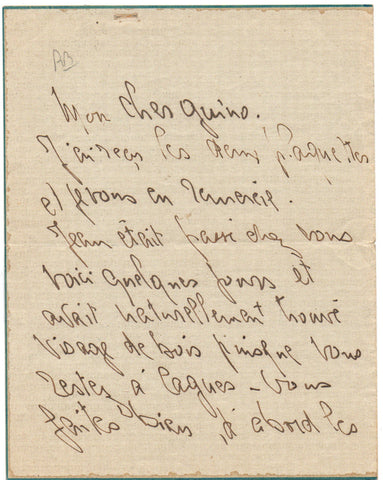 AB
Mon cher Guino.
J'ai reçu les deux plaquettes
et je vous en remercie.
Jean était passé chez vous
voici quelques jours et
avait naturellement trouvé
visage de bois puisque vous
restez à Cagnes - Vous
faites bien, d'abord les